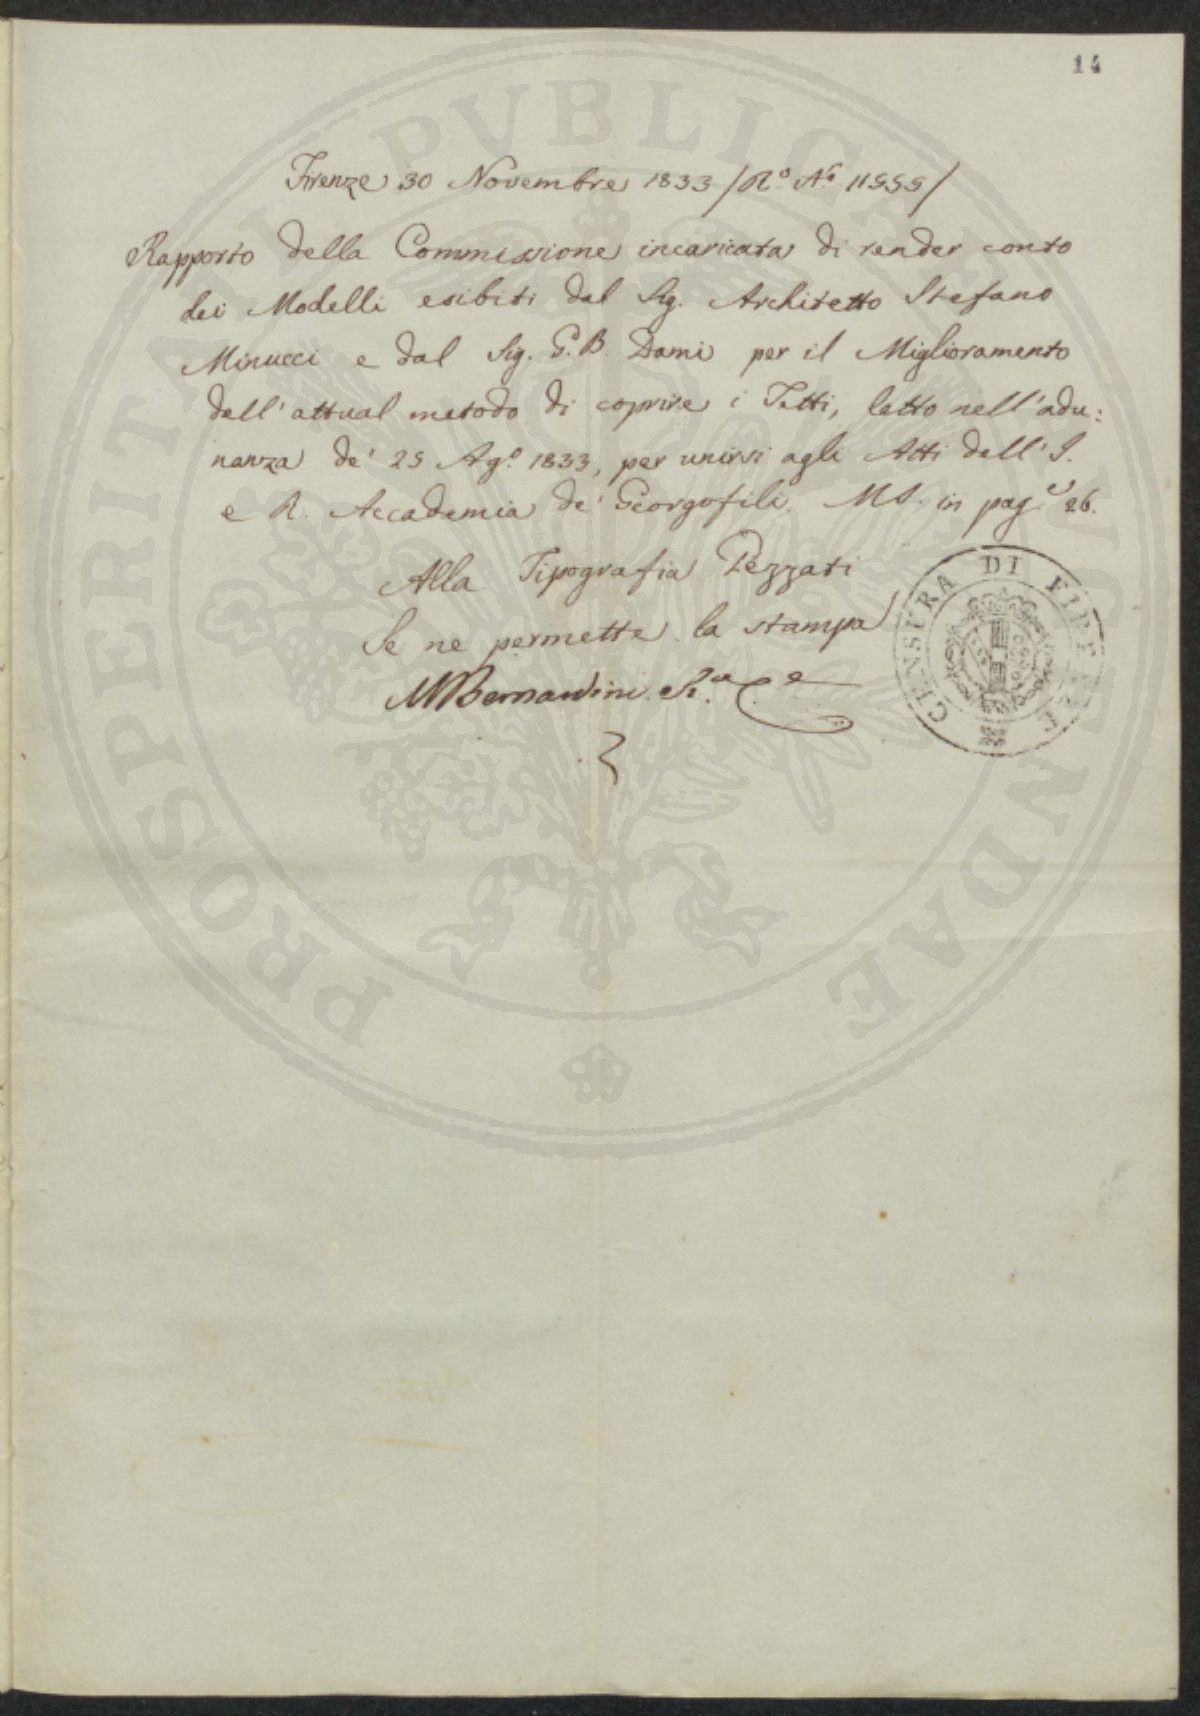 14
Firenze 30 Novembre 1833 /R.º A.ª 11555/
Rapporto della Commissione incaricata di render conto
dei Modelli esibiti dal Sig. Architetto Stefano
Minucci e dal Sig. G. B. Dami per il Miglioramento
dell'attual metodo di coprire i Tetti, letto nell'adu:
nanza de' 25 Ag.º 1833, per unirsi agli Atti dell'I.
e R. Accademia de' Georgofili. MS. in pag.e 26.
Alla Tipografia Pezzati
Se ne permette la stampa
M Bernardini
CENSURA DI FIRENZE
PROSPERITATI PVBLICAE AVGENDAE